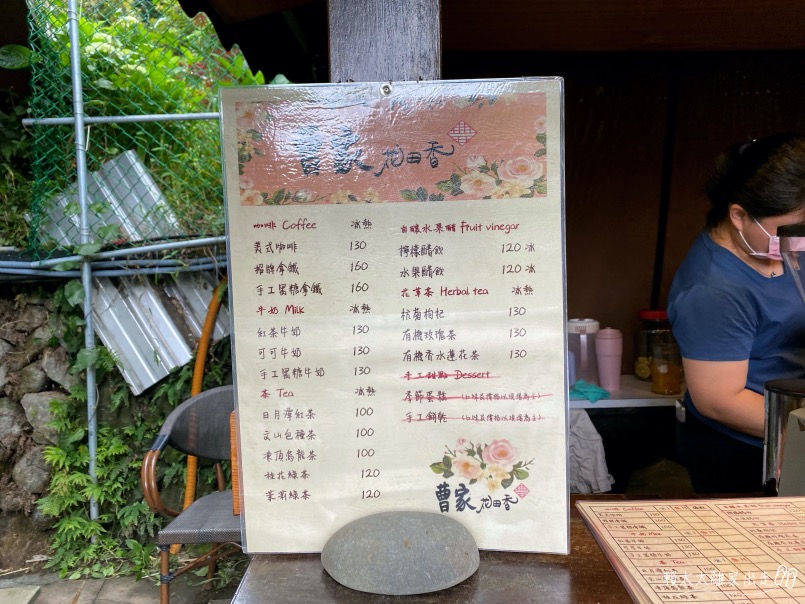 曹家花田香
咖啡 Coffee 冰熱
美式咖啡 130
招牌拿鐵 160
手工蜜糖拿鐵 160
牛奶 Milk 冰熱
紅茶牛奶 130
可可牛奶 130
手工蜜糖牛奶 130
茶 Tea 冰熱
日月潭紅茶 100
文山包種茶 100
凍頂烏龍茶 100
桂花綠茶 120
茉莉綠茶 120
自釀水果醋 Fruit vinegar
檸檬醋飲 120 冰
水果醋飲 120 冰
花草茶 Herbal tea 冰熱
杭菊枸杞 130
有機玫瑰茶 130
有機香水蓮花茶 130
手工甜點 Dessert
季節蛋糕 (口味及價格以現場為主)
手工餅乾 (口味及價格以現場為主)
曹家花田香
咖啡 Coffee
牛奶 Milk
茶 Tea